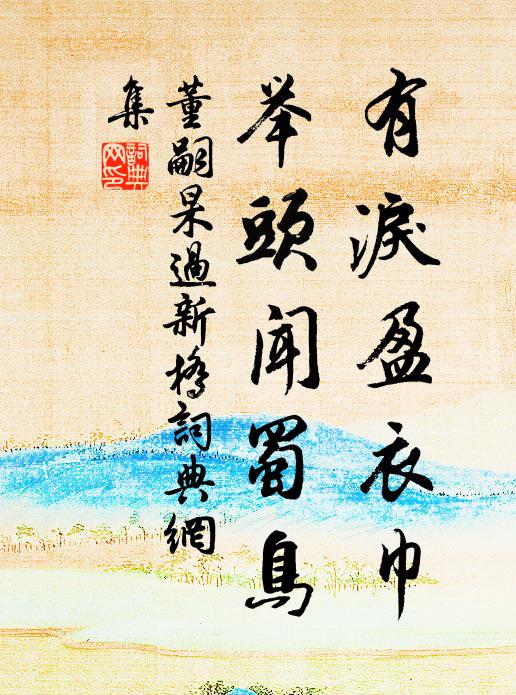 有淚盈衣巾
举頭聞蜀鳥
董嗣杲過新橋詞典網
集
詞典
网印